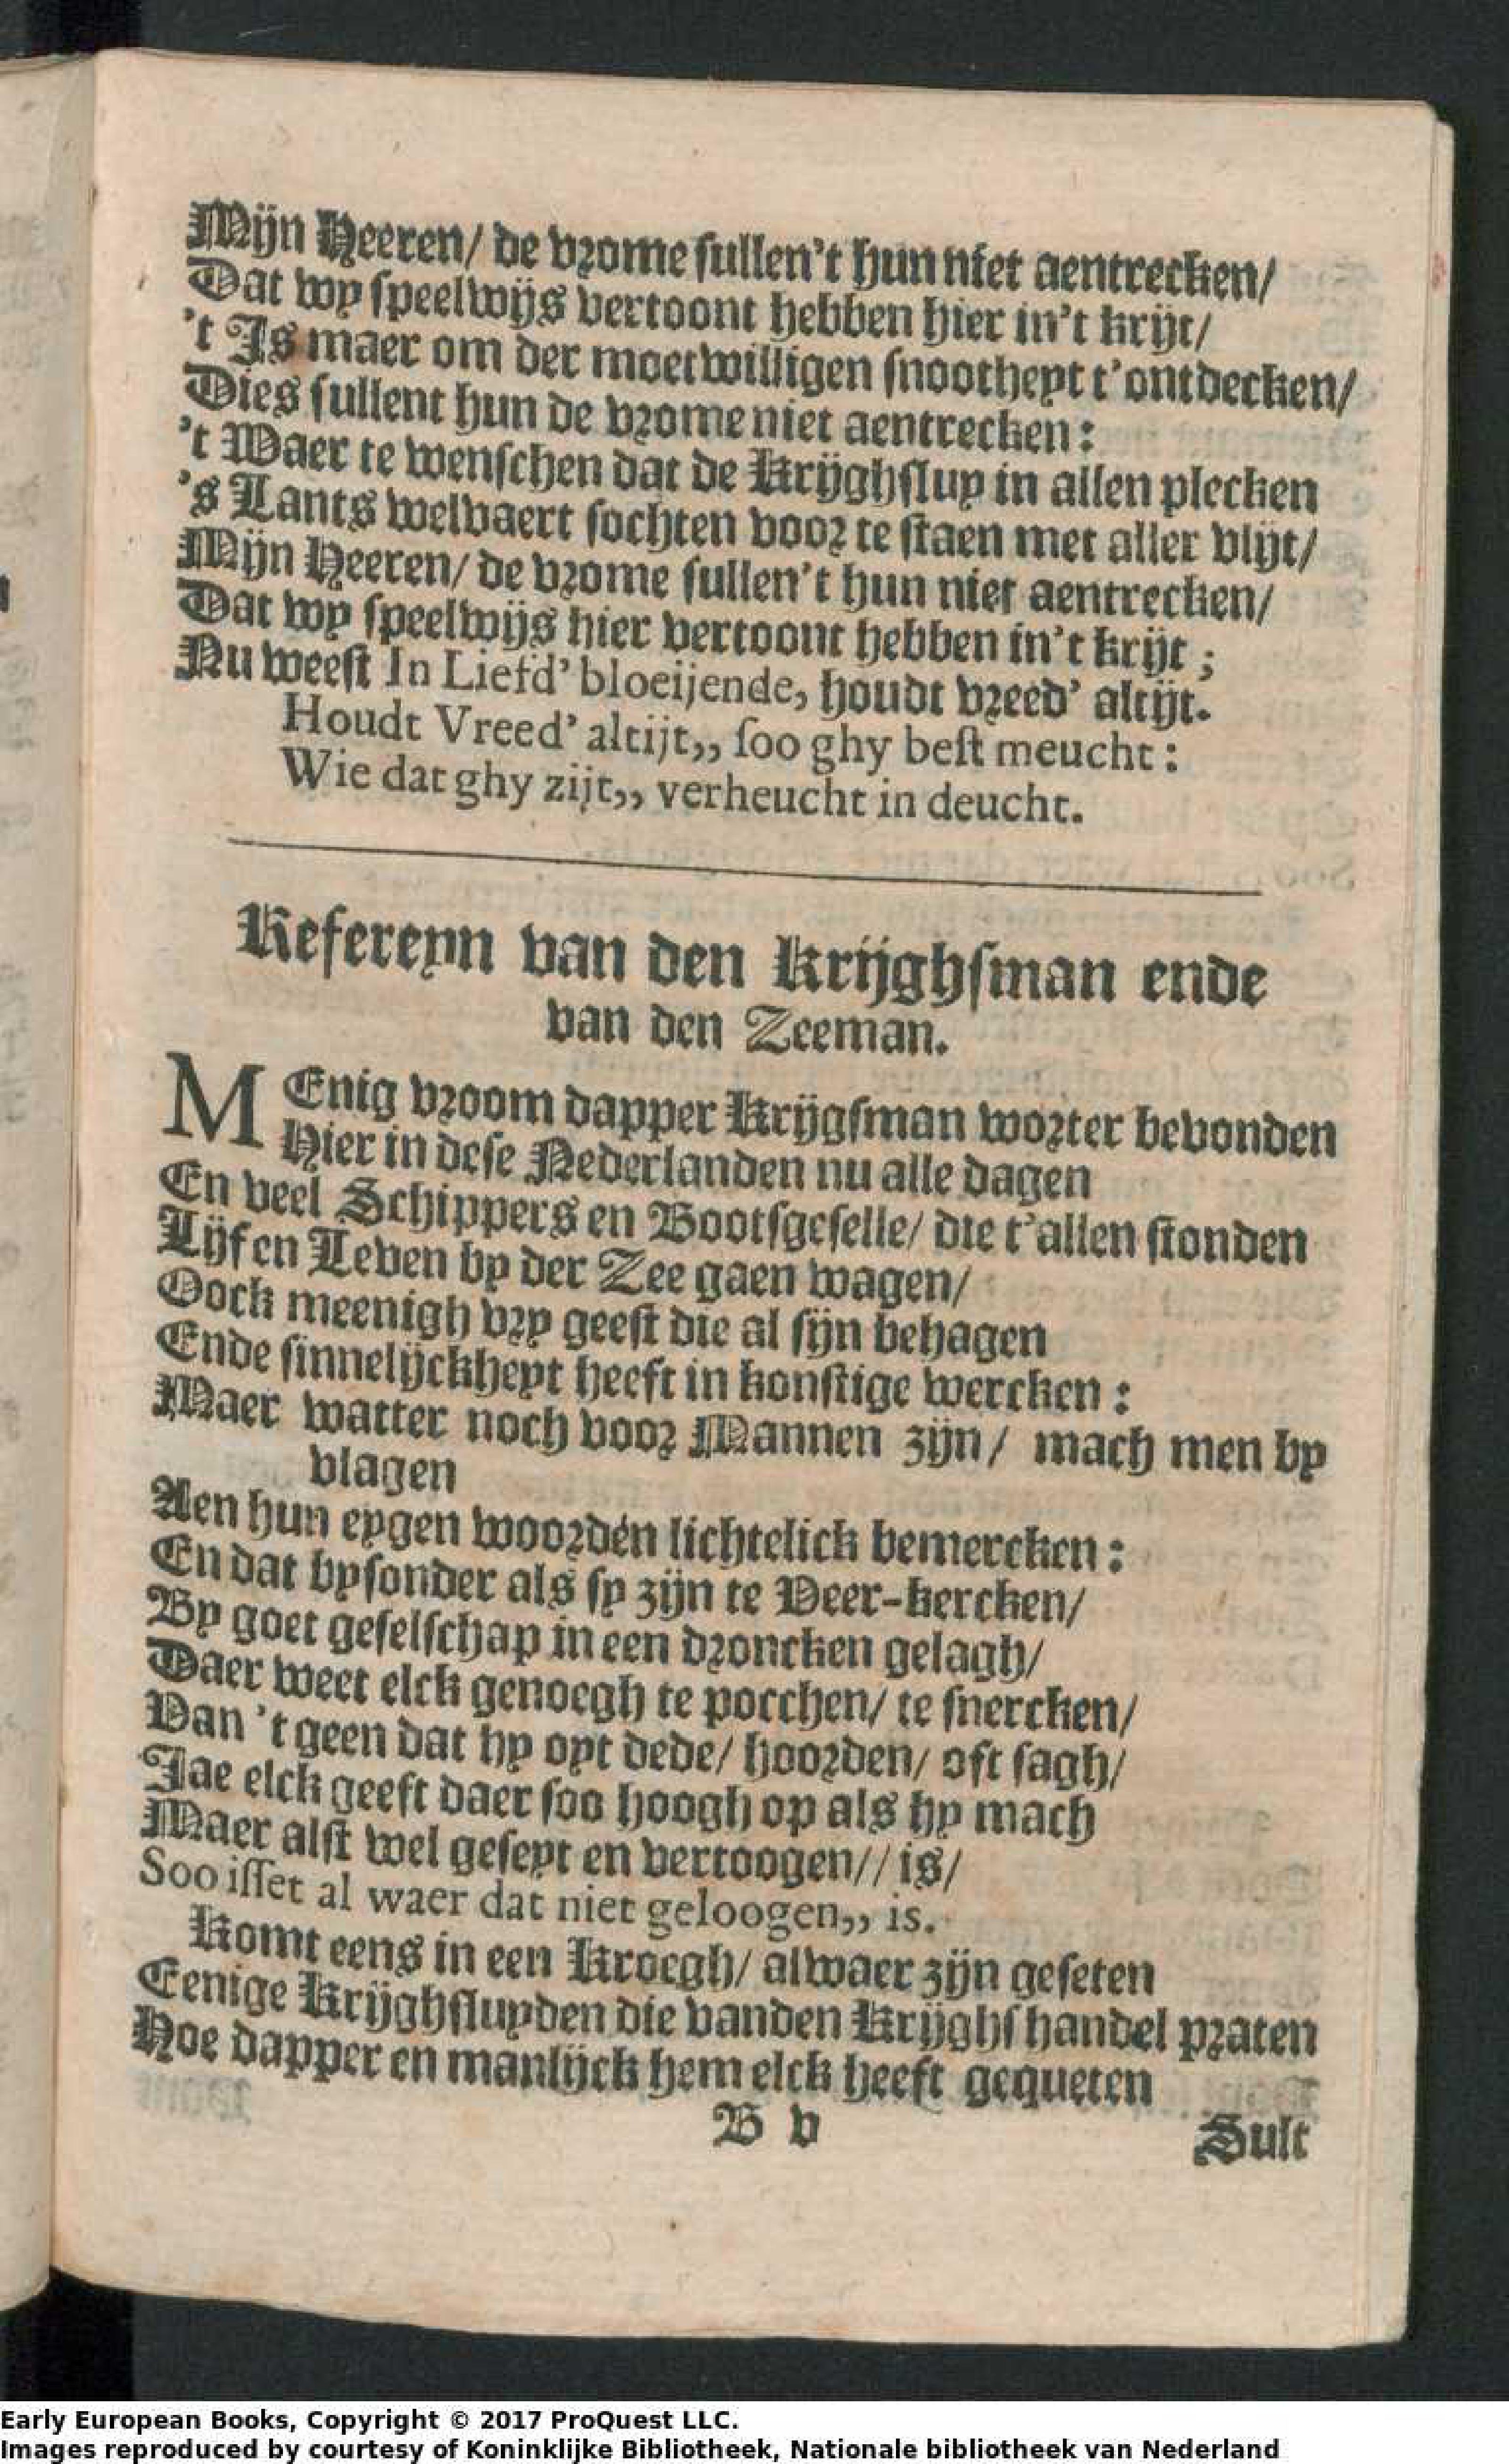 Mijn Heeren/ de vrome sullen't hun niet aentrecken/
Dat wy speelwijs vertoont hebben hier in't krijt/
't Is maer om der moetwilligen snootheyt t'ontdecken/
Dies sullent hun de vrome niet aentrecken:
't Waer te wenschen dat de Krijghsluy in allen plecken
's Lants welvaert sochten voor te staen met aller vlijt/
Mijn Heeren/ de vrome sullen't hun niet aentrecken/
Dat wy speelwijs hier vertoont hebben in't krijt;
Nu weest In Liefd' bloeijende, houdt vreed' altijt.
Houdt Vreed' altijt,, soo ghy best meucht:
Wie dat ghy zijt,, verheucht in deucht.
Refereyn van den Krijghsman ende
van den Zeeman.
MEnig vroom dapper Krijgsman worter bevonden
Hier in dese Nederlanden nu alle dagen
En veel Schippers en Bootsgeselle/ die t'allen stonden
Lijf en Leven by der Zee gaen wagen/
Oock meenigh vry geest die al sijn behagen
Ende sinnelijckheyt heeft in konstige wercken:
Maer watter noch voor Mannen zijn/ mach men by
vlagen
Aen hun eygen woorden lichtelick bemercken:
En dat bysonder als sy zijn te Veer-kercken/
By goet geselschap in een droncken gelagh/
Daer weet elck genoegh te pocchen/ te snercken/
Van 't geen dat hy oyt dede/ hoorden/ oft sagh/
Jae elck geeft daer soo hoogh op als hy mach
Maer alst wel geseyt en vertoogen// is/
Soo isset al waer dat niet geloogen,, is.
Komt eens in een Kroegh/ alwaer zijn geseten
Eenige Krijghsluyden die vanden Krijghs handel praten
Hoe dapper en manlijck hem elck heeft gequeten
B v
Sulc
Early European Books, Copyright © 2017 ProQuest LLC.
Images reproduced by courtesy of Koninklijke Bibliotheek, Nationale bibliotheek van Nederland